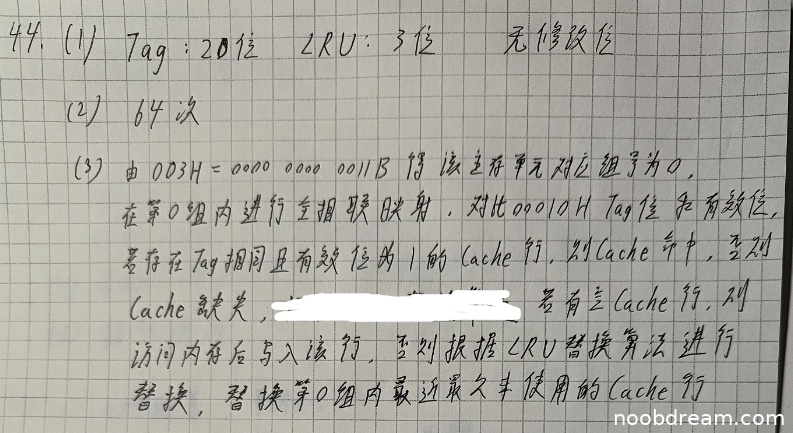 44. (1) Tag : 20位 LRU : 3位 无修改位
(2) 64次
(3) 由 003H = 0000 0000 0011B 得该主存单元对应组号为0,
在第0组内进行全相联映射. 对比00010H Tag位和有效位,
若存在Tag相同且有效位为1的Cache行, 则Cache命中, 否则
Cache缺失, 若有空Cache行, 则
访问内存后写入该行, 否则根据LRU替换算法进行
替换, 替换第0组内最近最久未使用的Cache行
noobdream.com